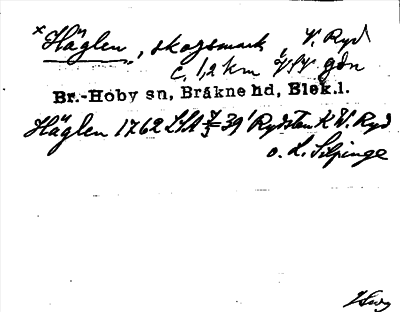 × Häglen, skogsmark, V. Ryd
c. 1,2 km VSV gdn
Br.-Hoby sn, Bräkne hd, Blek.l.
Häglen 1762 LSA 39 Rydsten K V. Ryd
o. L. Silpinge